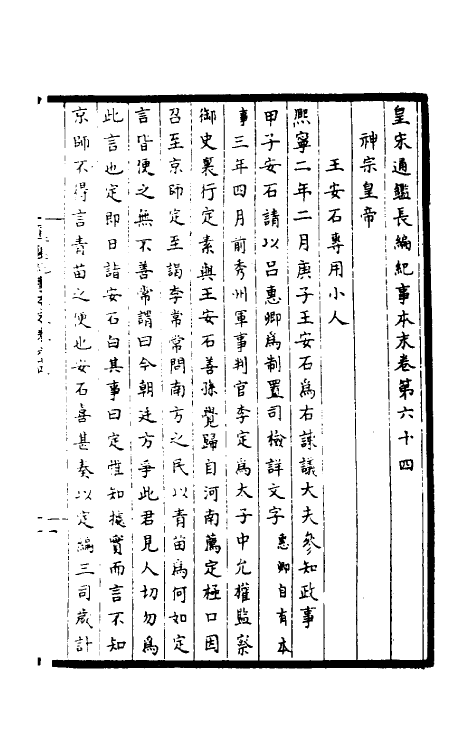 皇宋通鑑長編紀事本末卷第六十四
神宗皇帝
王安石專用小人
熙寧二年二月庚子王安石爲右諫議大夫參知政事
甲子安石請以呂惠卿爲制置司檢詳文字惠卿自有本
事三年四月前秀州軍事判官李定爲大子中允權監察
御史裏行定素與王安石善孫覺歸自河南薦定極口因
召至京師定至謁李常常問南方之民以青苗爲何如定
言皆便之無不善常謂曰今朝廷方爭此君見人切勿爲
此言也定即日詣安石白其事曰定惟知據實而言不知
京師不得言青苗之便也安石喜甚奏以定編三司歲計